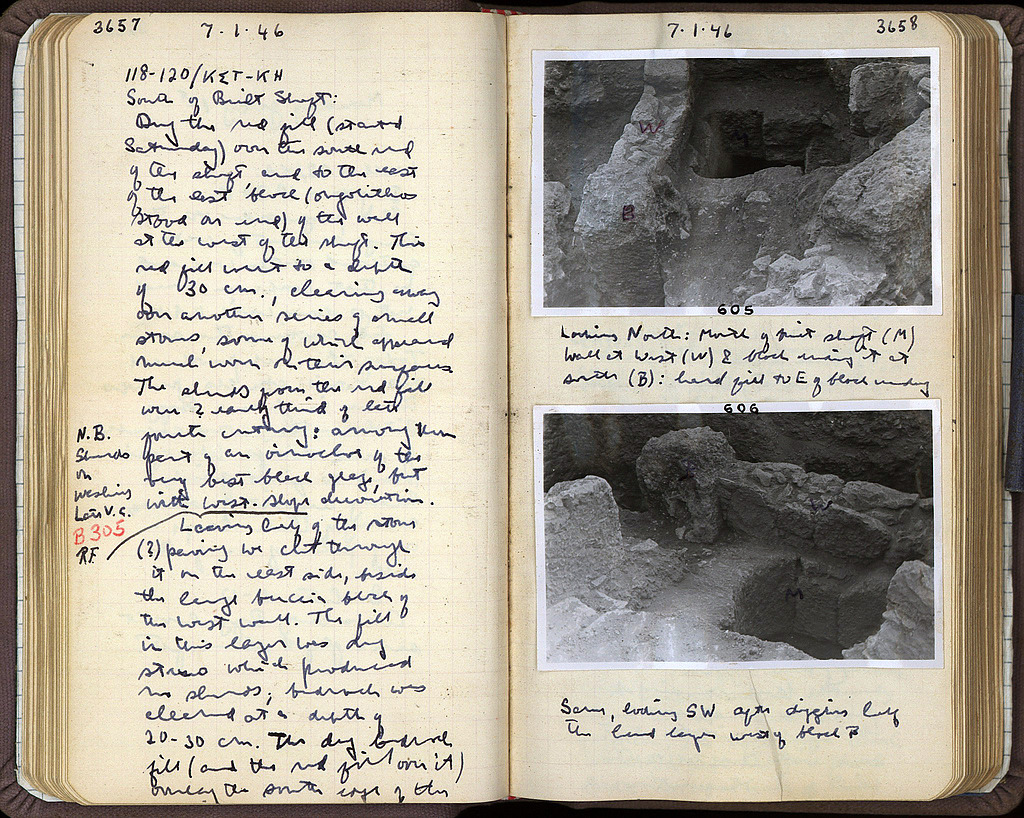 3657
7.1.46
118-120/ΚΣΤ-ΚΗ
South of Built Shaft:
Dug the red fill (started
Saturday) over the south end
of the shaft and to the east
of the east block (orgolithos
stood on end) of the wall
at the west of the shaft. This
red fill went to a depth
of 30 cm., clearing away
over another series of small
stones, some of which appeared
much worn on their surfaces
The sherds from the red fill
were ? early third or late
fourth century: among them
part of an oinochoe of the
very best black glaze, but
with west-slope decoration.
N.B.
Sherds
on
washing
Late V.C.
B 305
RF.
Leaving half of the stone
(?) paving we cut through
it on the west side, beside
the large breccia block of
the west wall. The fill
in this layer was dug
stereo which produced
no sherds; bedrock was
cleared at a depth of
20-30 cm. The dug bedrock
fill (and the red fill over it)
overlay the south edge of the
7.1.46
3658
W
M
B
605
Looking North: Mouth of built shaft (M)
Wall at West (W) & block ending it at
south (B): hard fill to E of block
606
W
M
Same, looking SW after digging half
the hard layer west of block B